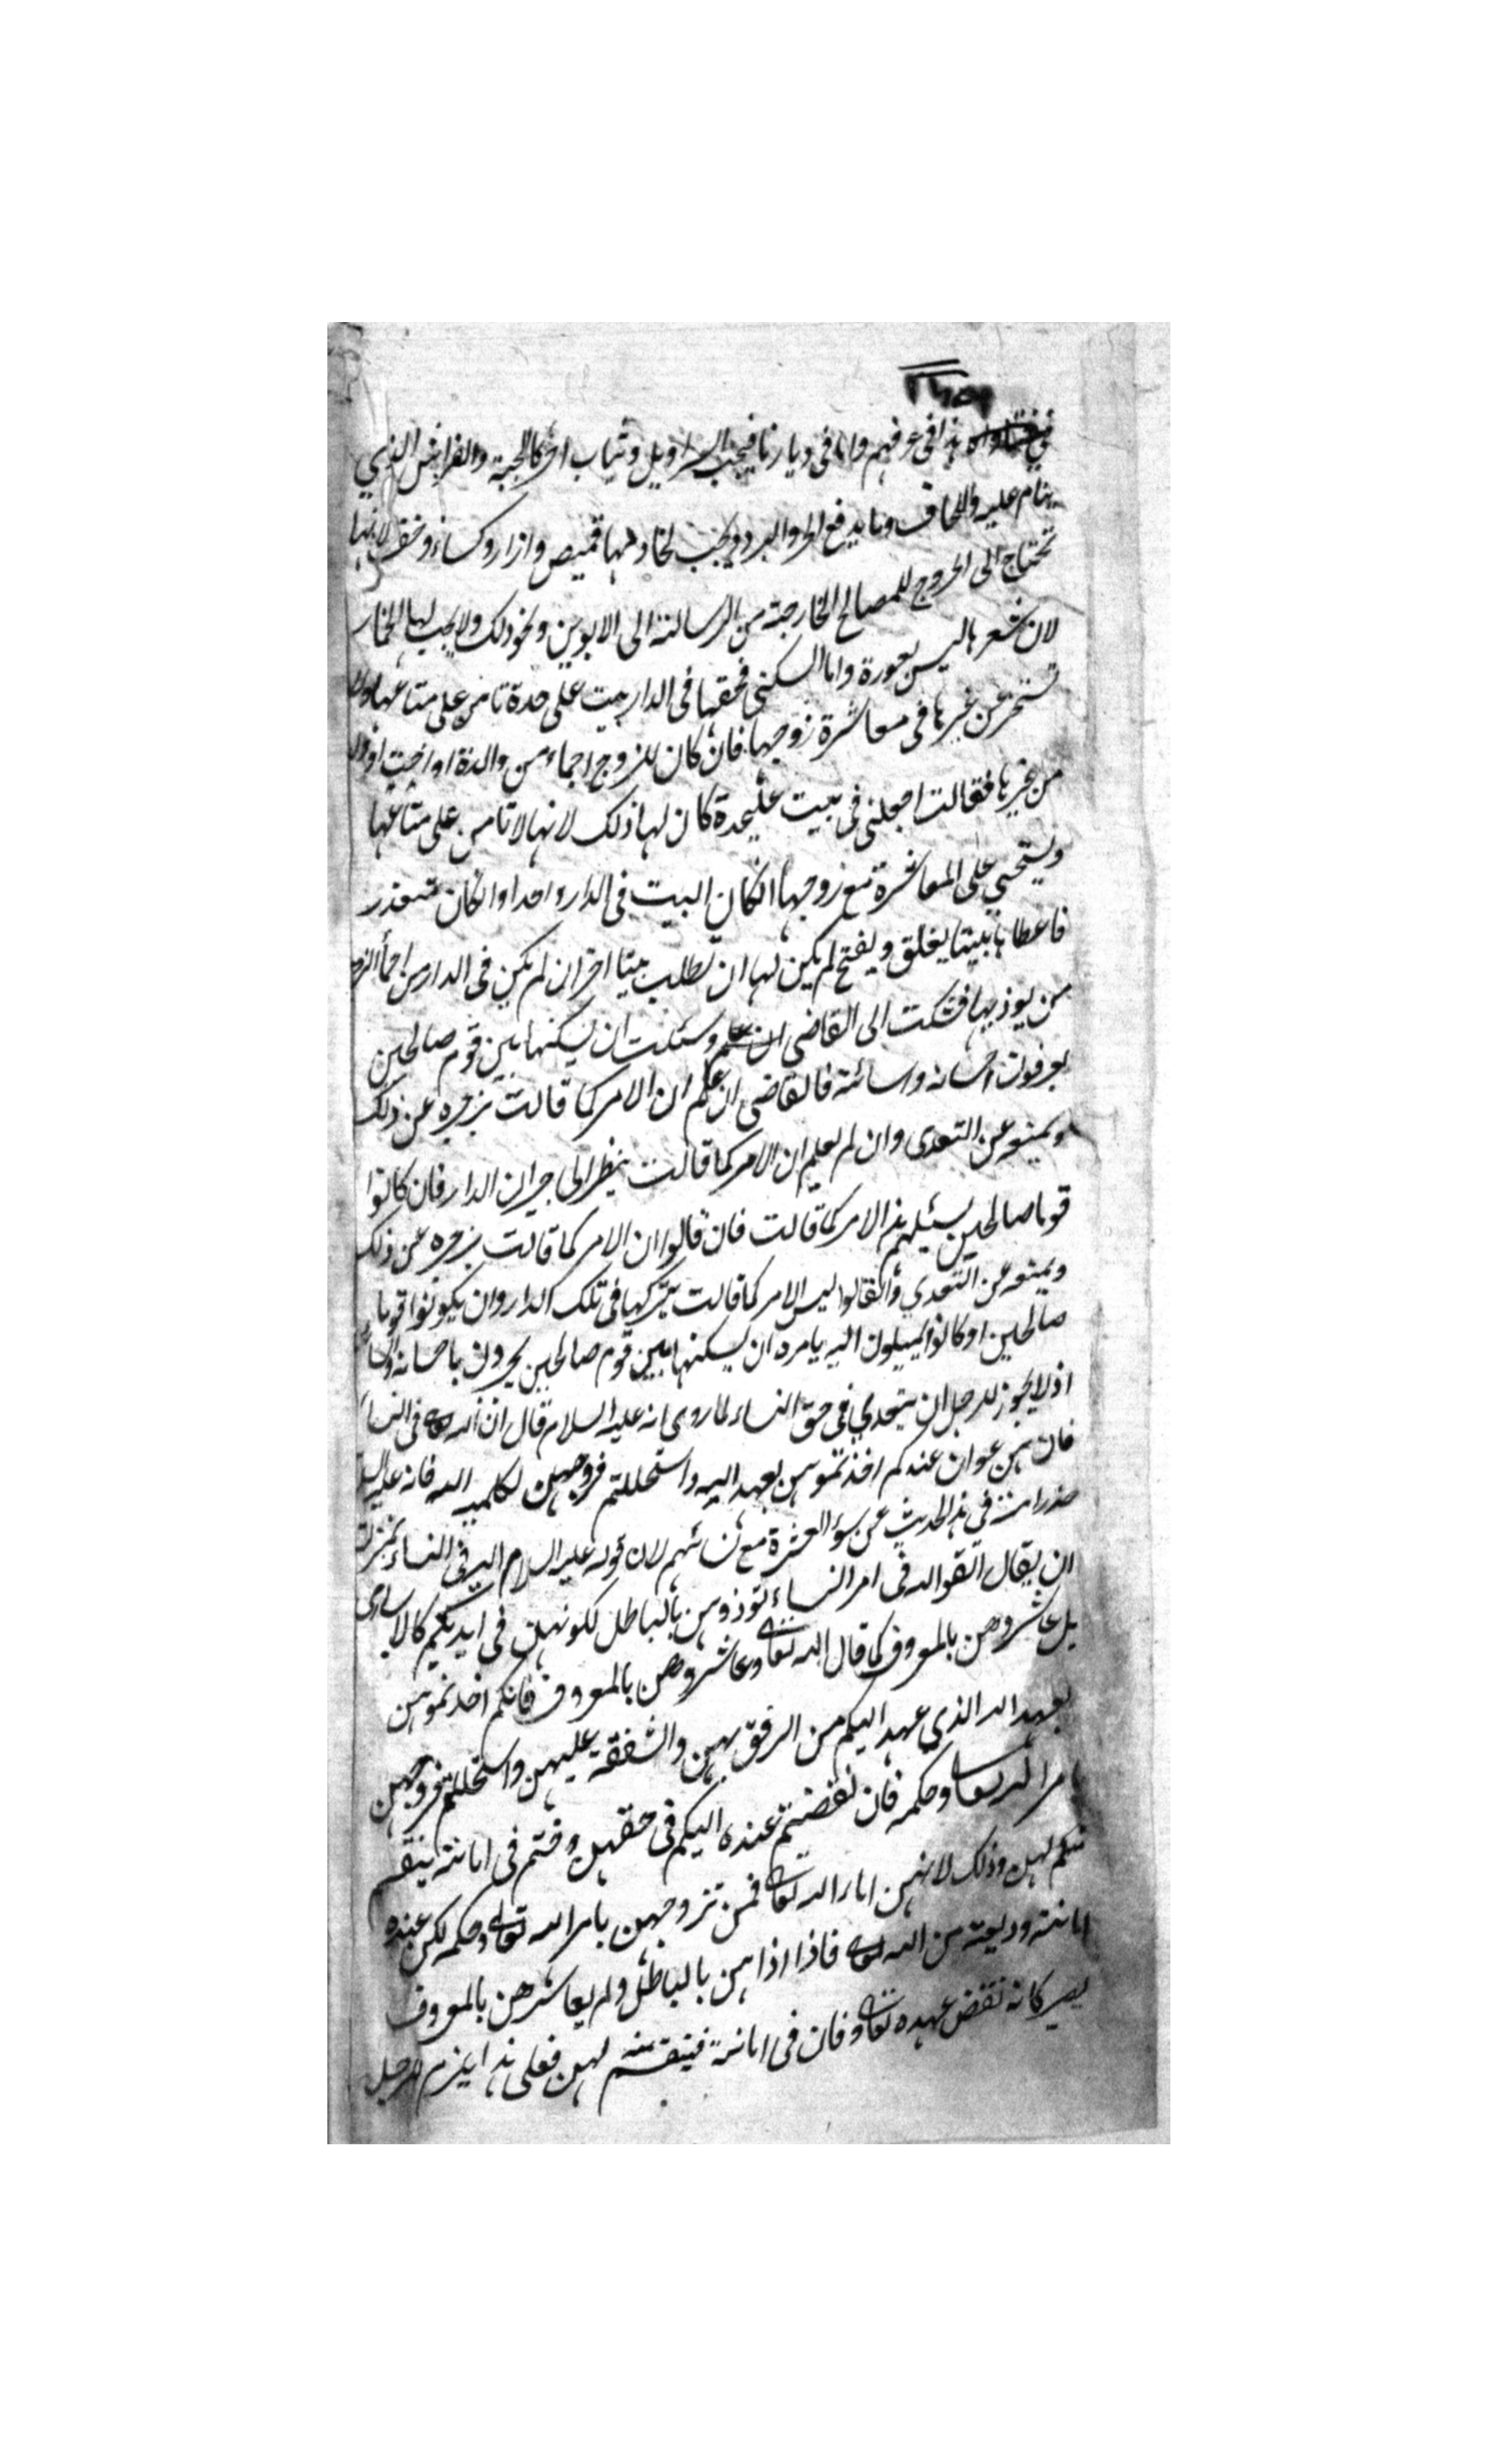 هذا في عرفهم واما في ديارنا فيجب السراويل وثياب اخر كالجبة والفراش الذي
ينام عليه واللحاف وما يدفع الحر والبرد ويجب لخادمها قميص وازار وكساء وخف لانها
تحتاج الى الخروج للمصالح الخارجة من الرسالة الى الابوين ونحو ذلك ولا يجب لها الخمار
لان شعرها ليس بعورة واما السكنى فحقها في الدار بيت على حدة تامن على متاعها ولا
تستحي عن غيرها في معاشرة زوجها فان كان للزوج احماء من والدة او اخت او ولد
من غيرها فقالت اجعلني في بيت عليحدة كان لها ذلك لانها لا تامن على متاعها
ويستحيي على المعاشرة مع زوجها انكان البيت في الدار واحدا وانكان متعذر
فاعطاها بيتا يغلق ويفتح لم يكن لها ان تطلب بيتا اخر ان لم يكن في الدار من احماء الزوج
من يوذيها فشكت الى القاضي وسئلت ان يسكنها بين قوم صالحين
يعرفون احسانه واسائته فالقاضي ان علم ان الامر كما قالت يزجره عن ذلك
ويمنعه عن التعدى وان لم يعلم ان الامر كما قالت ينظر الى جيران الدار فان كانوا
قوما صالحين يسئلهم هذا الامر كما قالت فان قالوا ان الامر كما قالت يزجره عن ذلك
ويمنعه عن التعدي وانقالوا ليس الامر كما قالت يتركها في تلك الدار وان يكونوا قوما
صالحين او كانوا يميلون اليه يامره ان يسكنها بين قوم صالحين يخبرون باحسانه
اذ لا يجوز للرجل ان يتعدي في حق النساء لما روى انه عليه السلام قال ان الله في النساء
فان هن عوان عندكم اخذتموهن بعهد الله واستحللتم فروجهن بكلمة الله فانه عليه السلام
حذر امته في هذا الحديث عن سوء العشرة مع نسائهم لان قوله عليه السلام الله في النساء بمنزلة
ان يقال اتقوا الله في امر النساء توذوهن بالباطل لكونهن في ايديكم كالاسارى
بل عاشروهن بالمعروف كما قال الله تعالى وعاشروهن بالمعروف فانكم اخذتموهن
بعهد الله الذي عهد اليكم من الرفق بهن والشفقة عليهن واستحللتم فروجهن
بامر الله تعالى وحكمه فان نقضتم عهده اليكم في حقهن وخنتم في امانته ينتقم
منكم لهن وذلك لانهن اماء الله تعالى فمن تزوجهن بامر الله تعالى وحكمه لكن عنده
امانته وديعة من الله تعالى فاذا اذاهن بالباطل ولم يعاشرهن بالمعروف
يصير كانه نقض عهده تعالى وخان في امانته فينتقم منه لهن فعلى هذا يلزم للرجل